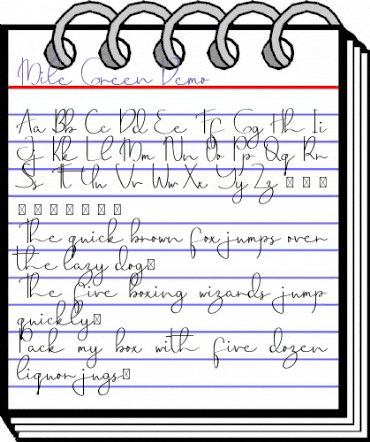 Mile Green Demo
Aa Bb Cc Dd Ee Ff Gg Hh Ii
Jj Kk Ll Mm Nn Oo Pp Qq Rr
Ss Tt Uu Vv Ww Xx Yy Zz
The quick brown fox jumps over
the lazy dog
The five boxing wizards jump
quickly
Pack my box with five dozen
liquor jugs